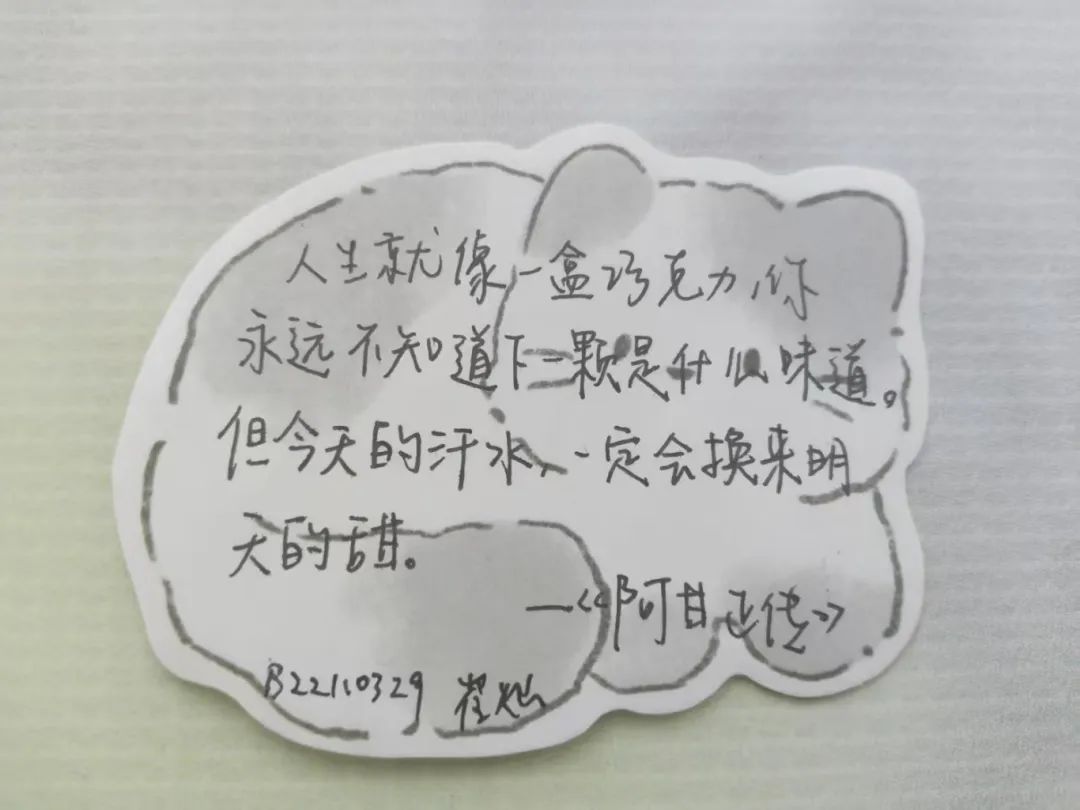 人生就像一盒巧克力,你
永远不知道下一颗是什么味道。
但今天的汗水,一定会换来明
天的甜。
—《阿甘正传》
B22110329 崔灿